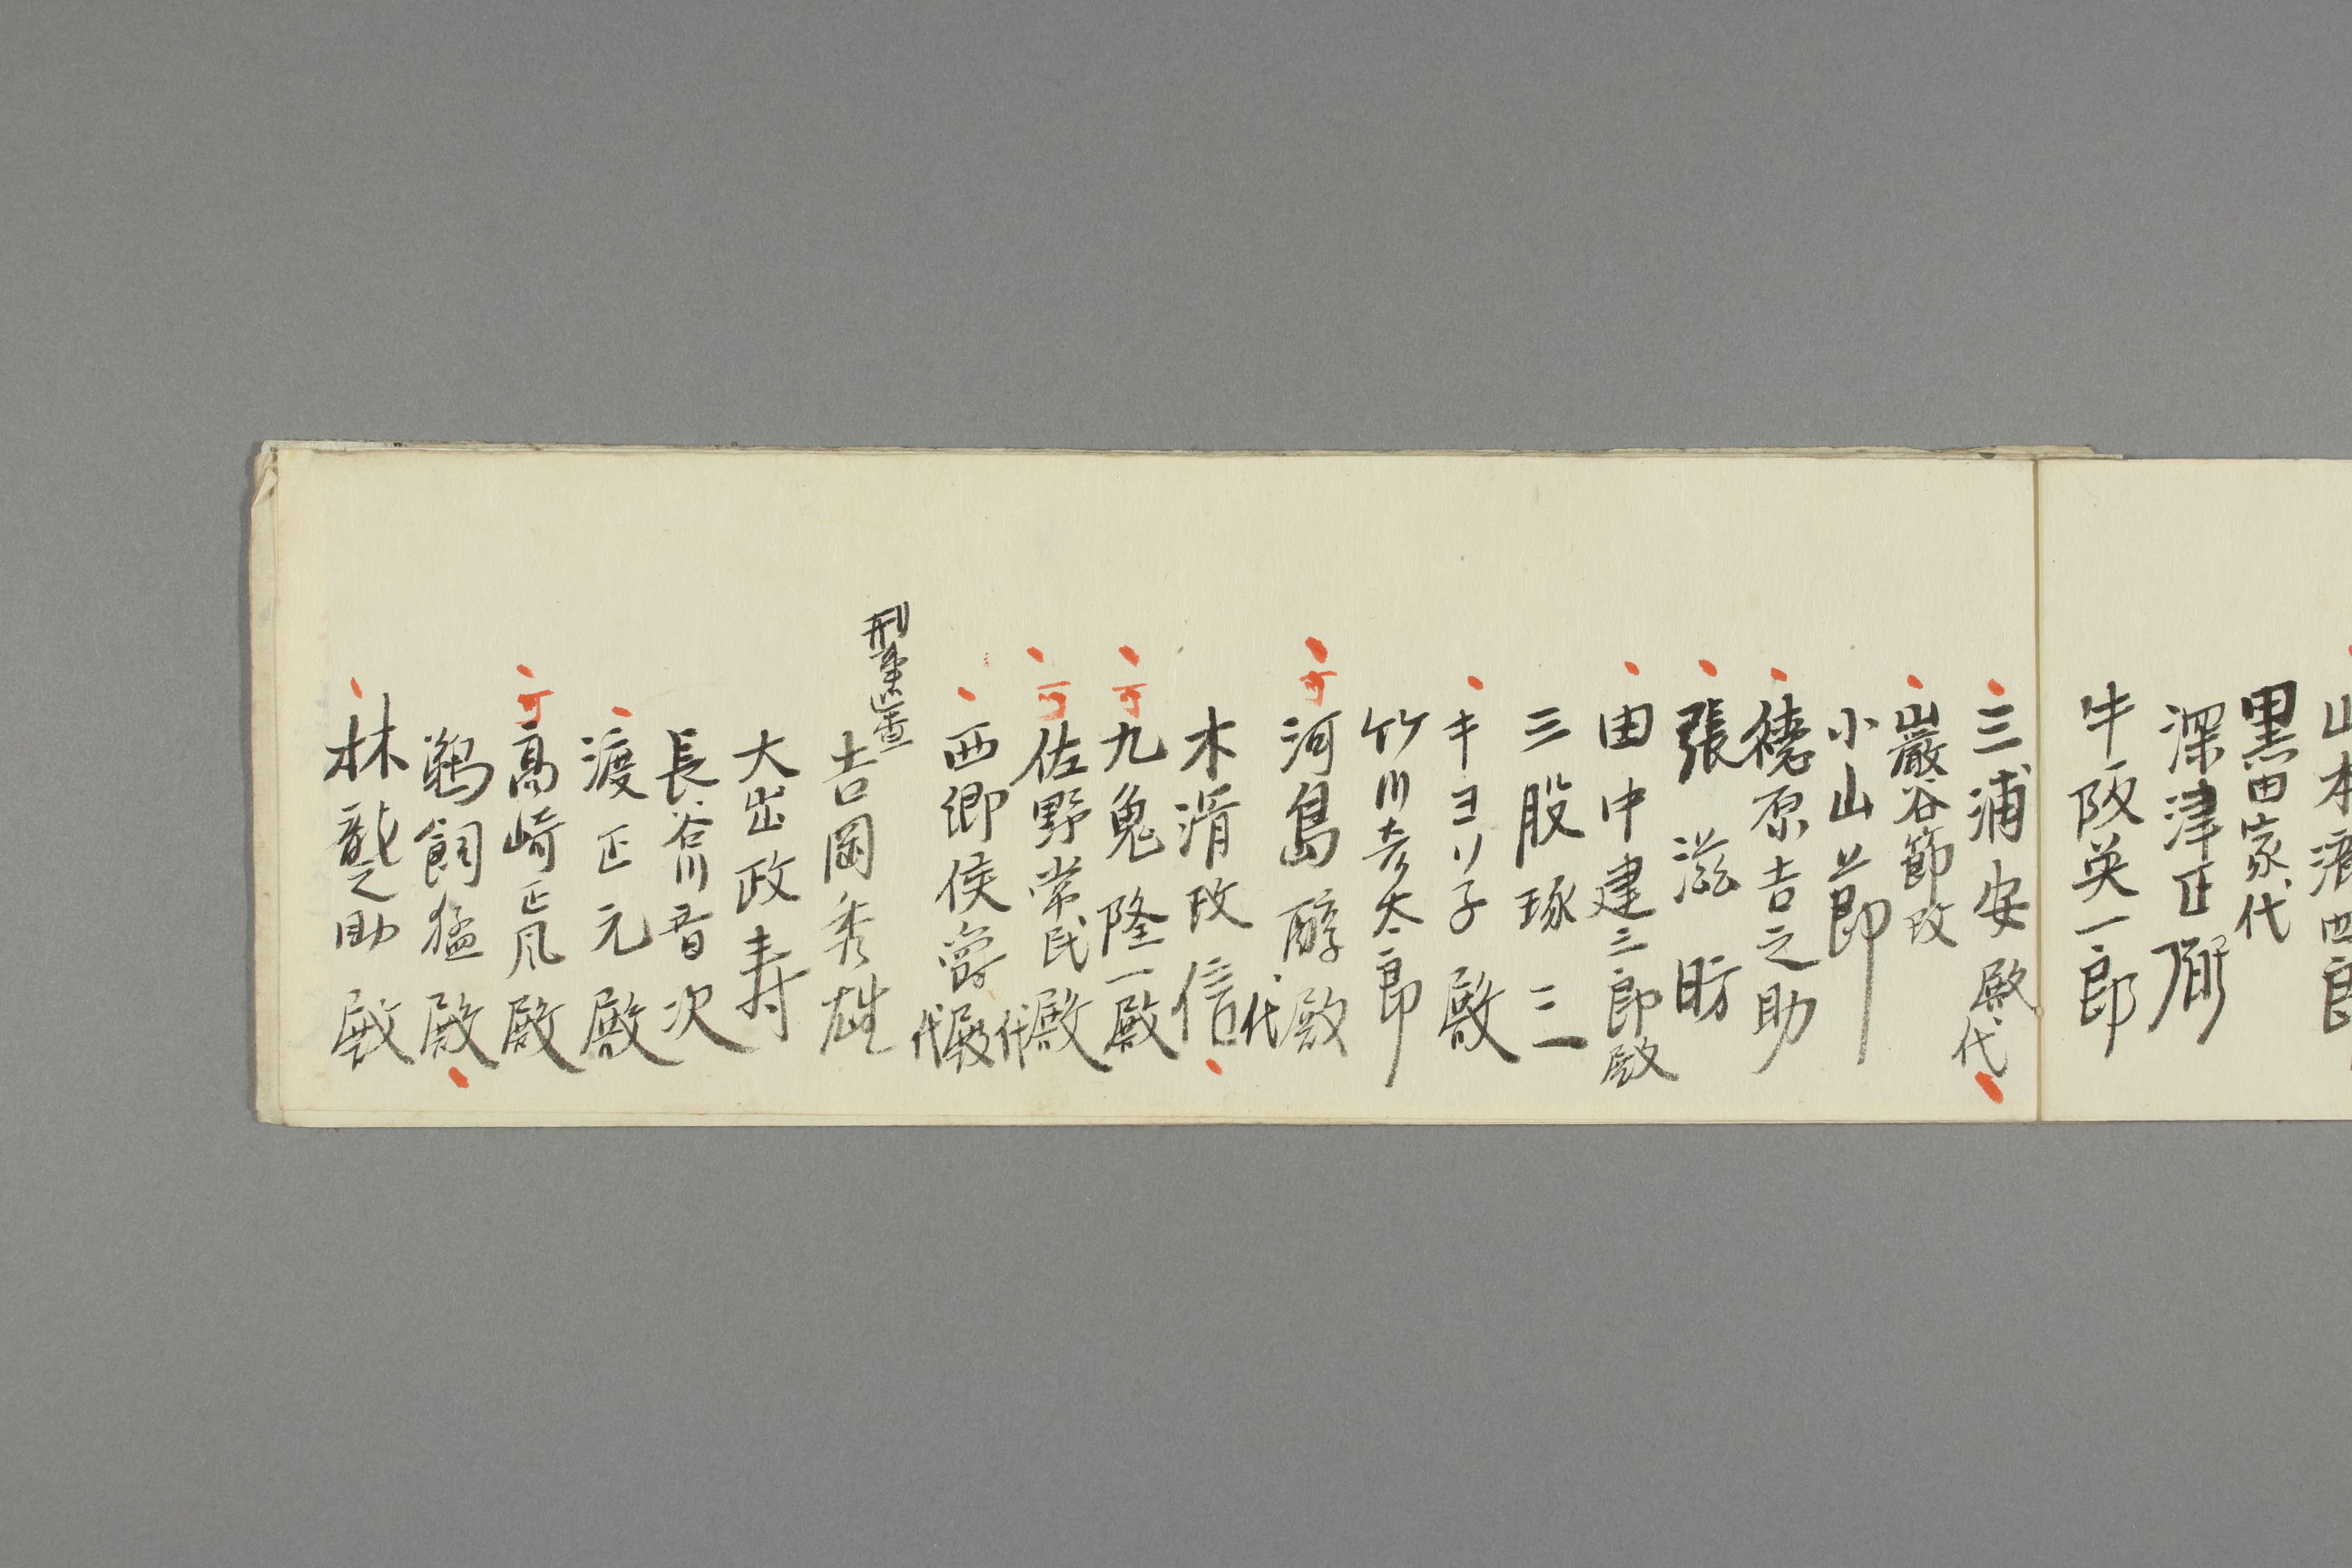 山本済四郎
黒田家代
深津正彌
牛阪英一郎
三浦安殿代
巖谷節改
小山正節
徳原吉之助
張滋昉
田中建三郎殿
三股琢三
キヨソ子殿
竹川彦太郎
可河島醇代殿
木滑政信
可九鬼隆一殿
可佐野常民殿代
西郷侯爵殿代
刑事巡査
吉岡秀雄
大出政寿
長谷川音次
渡正元殿
可高崎正風殿
鵜飼猛殿
林龍之助殿